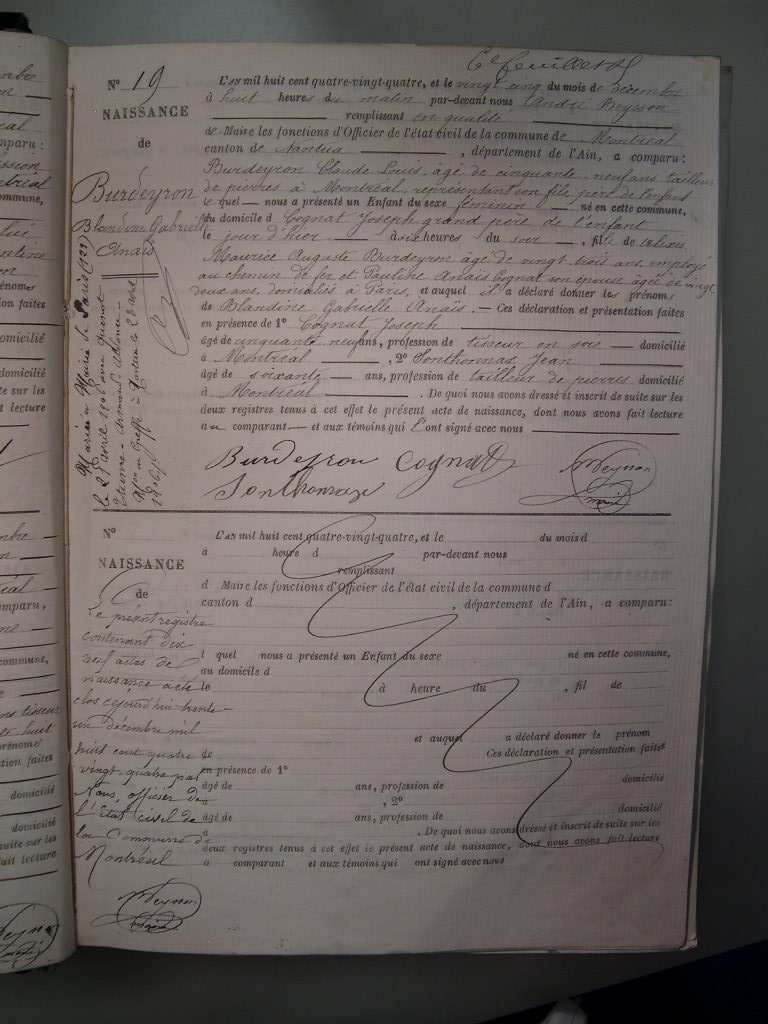 6e feuillet
N° 19
NAISSANCE
de
Burdeyron
Blandine Gabrielle
Anaïs
L'AN mil huit cent quatre-vingt-quatre, et le vingt cinq du mois de Décembre
à huit heures du matin par-devant nous André Meysson
remplissant en qualité
de Maire les fonctions d'Officier de l'état civil de la commune de Montréal
canton de Nantua, département de l'Ain, a comparu:
Burdeyron Claude Louis, âgé de cinquante neuf ans, tailleur
de pierres à Montréal représentant son fils père de l'enfant
le quel nous a présenté un Enfant du sexe féminin né en cette commune,
au domicile d Cognat Joseph grand père de l'enfant
le jour d'hier à six heures du soir, fille de celui
Maurice Auguste Burdeyron âgé de vingt trois ans, employé
au chemin de fer et Pauline Anaïs Cognat son épouse âgée de vingt
deux ans, domiciliés à Paris, et auquel il a déclaré donner les prénoms
de Blandine Gabrielle Anaïs. — Ces déclaration et présentation faites
en présence de 1° Cognat Joseph
âgé de cinquante neuf ans, profession de tisseur en soie domicilié
à Montréal, 2° Sonthonnax Jean
âgé de soixante ans, profession de tailleur de pierres domicilié
à Montréal. De quoi nous avons dressé et inscrit de suite sur les
deux registres tenus à cet effet le présent acte de naissance, dont nous avons fait lecture
au comparant et aux témoins qui l'ont signé avec nous
Mariée à Mairie de Paris
le 28 avril 1906 avec
Etienne Armand
au Greffe à Nantua le 28
1906
Burdeyron Cognat Meysson
Sonthonnax maire
N°
NAISSANCE
de
L'AN mil huit cent quatre-vingt-quatre, et le du mois d
à heure d par-devant nous
remplissant
d Maire les fonctions d'Officier de l'état civil de la commune d
canton d, département de l'Ain, a comparu:
l quel nous a présenté un Enfant du sexe né en cette commune,
au domicile d
le à heure du, fil de
et auquel a déclaré donner le prénom
de Ces déclaration et présentation faites
en présence de 1°
âgé de ans, profession de domicilié
à, 2°
âgé de ans, profession de domicilié
à. De quoi nous avons dressé et inscrit de suite sur les
deux registres tenus à cet effet le présent acte de naissance, dont nous avons fait lecture
a comparant et aux témoins qui ont signé avec nous
Le présent registre
contenant dix
neuf actes de
naissance a été
clos cejourd'hui trente
un décembre mil
huit cent quatre
vingt quatre par
Nous, officier de
l'état civil de
la Commune de
Montréal
Meysson
maire